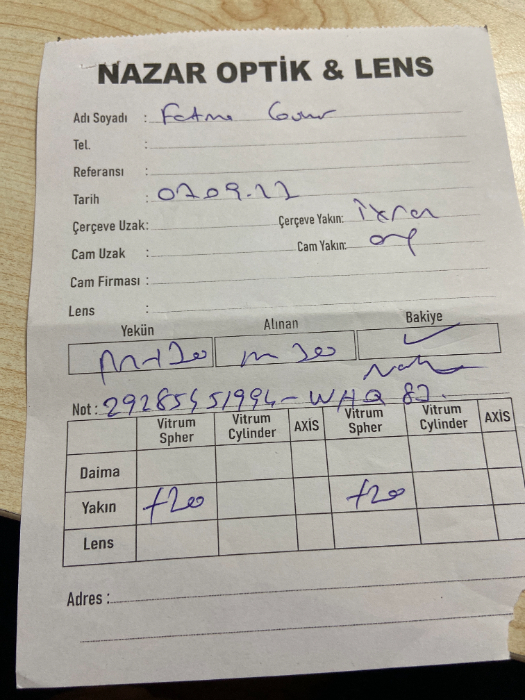 NAZAR OPTİK & LENS
Adı Soyadı : Fatma
Tel. :
Referansı :
Tarih :
Çerçeve Uzak: Çerçeve Yakın:
Cam Uzak : Cam Yakın:
Cam Firması :
Lens :
Yekün Alınan Bakiye
Not: 29285451994-WHQ 82.
Vitrum Spher Vitrum Cylinder AXİS Vitrum Spher Vitrum Cylinder AXİS
Daima
Yakın +200 +200
Lens
Adres :